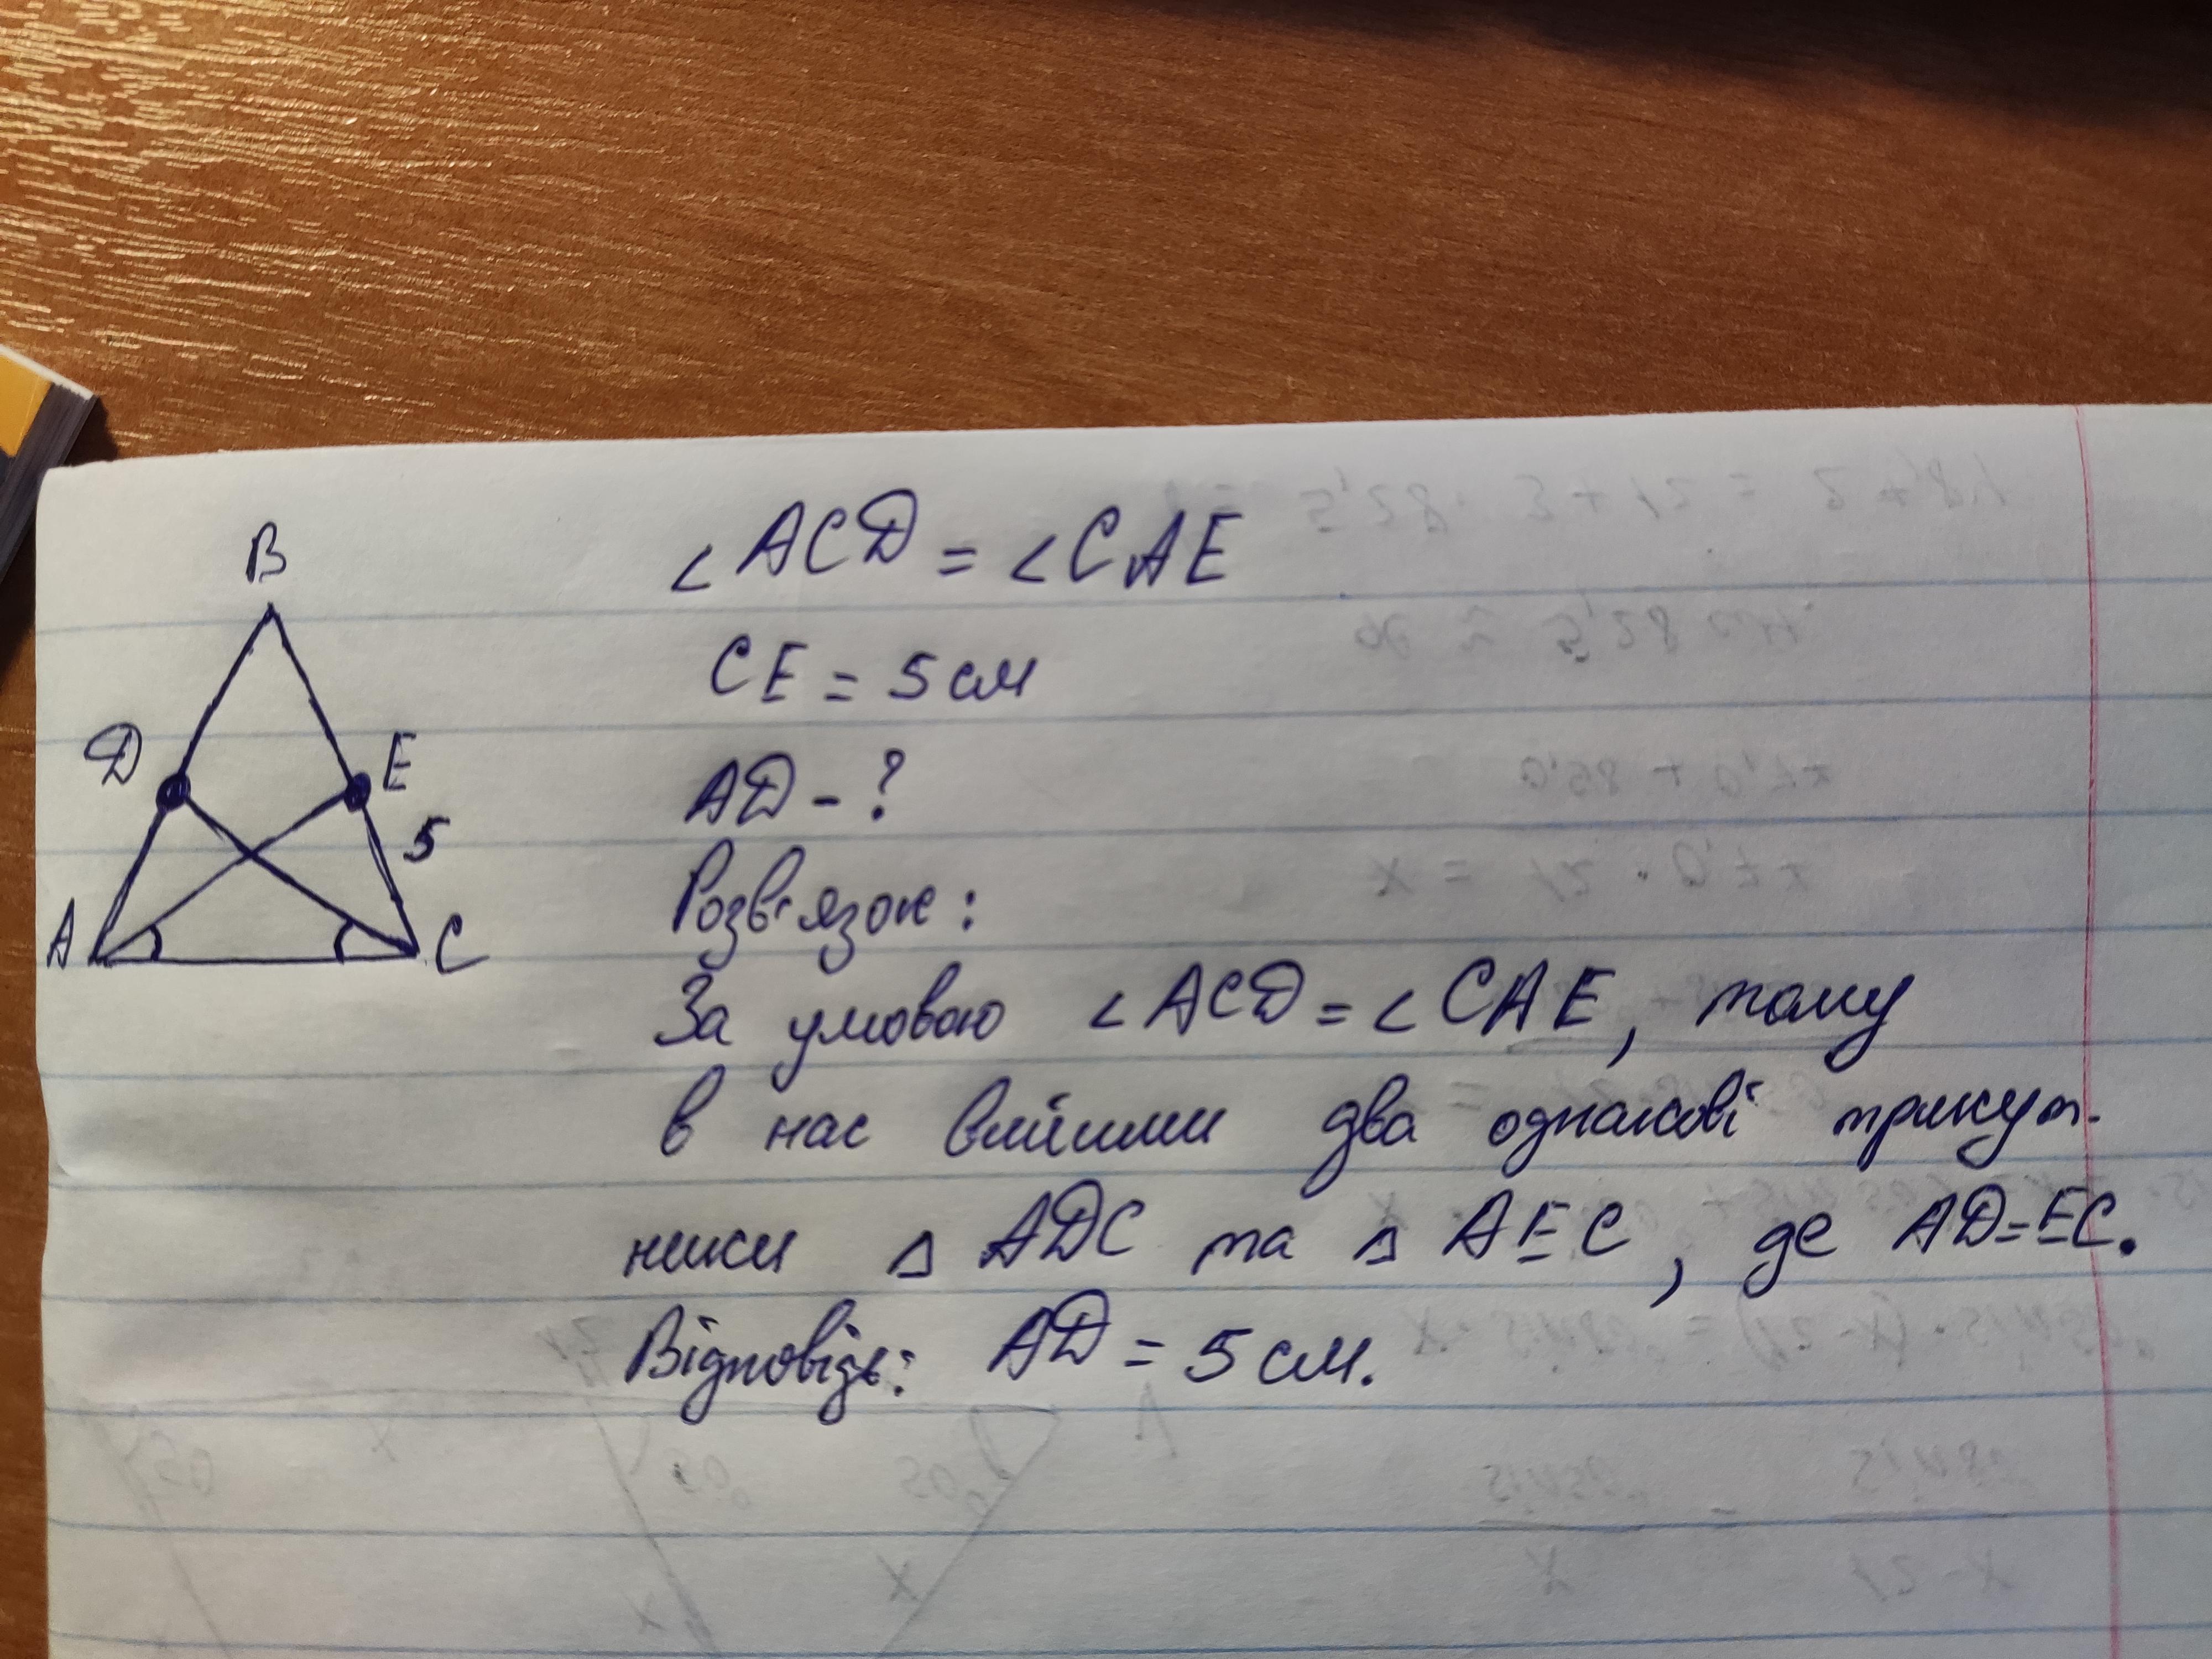 B
D
E
5
A
C
∠ACD = ∠CAE
CE = 5 см
AD - ?
Розв'язок:
За умовою ∠ACD = ∠CAE, тому
в нас вийшли два однакові трикут-
ники △ ADC та △ AEC, де AD=EC.
Відповідь: AD = 5 см.